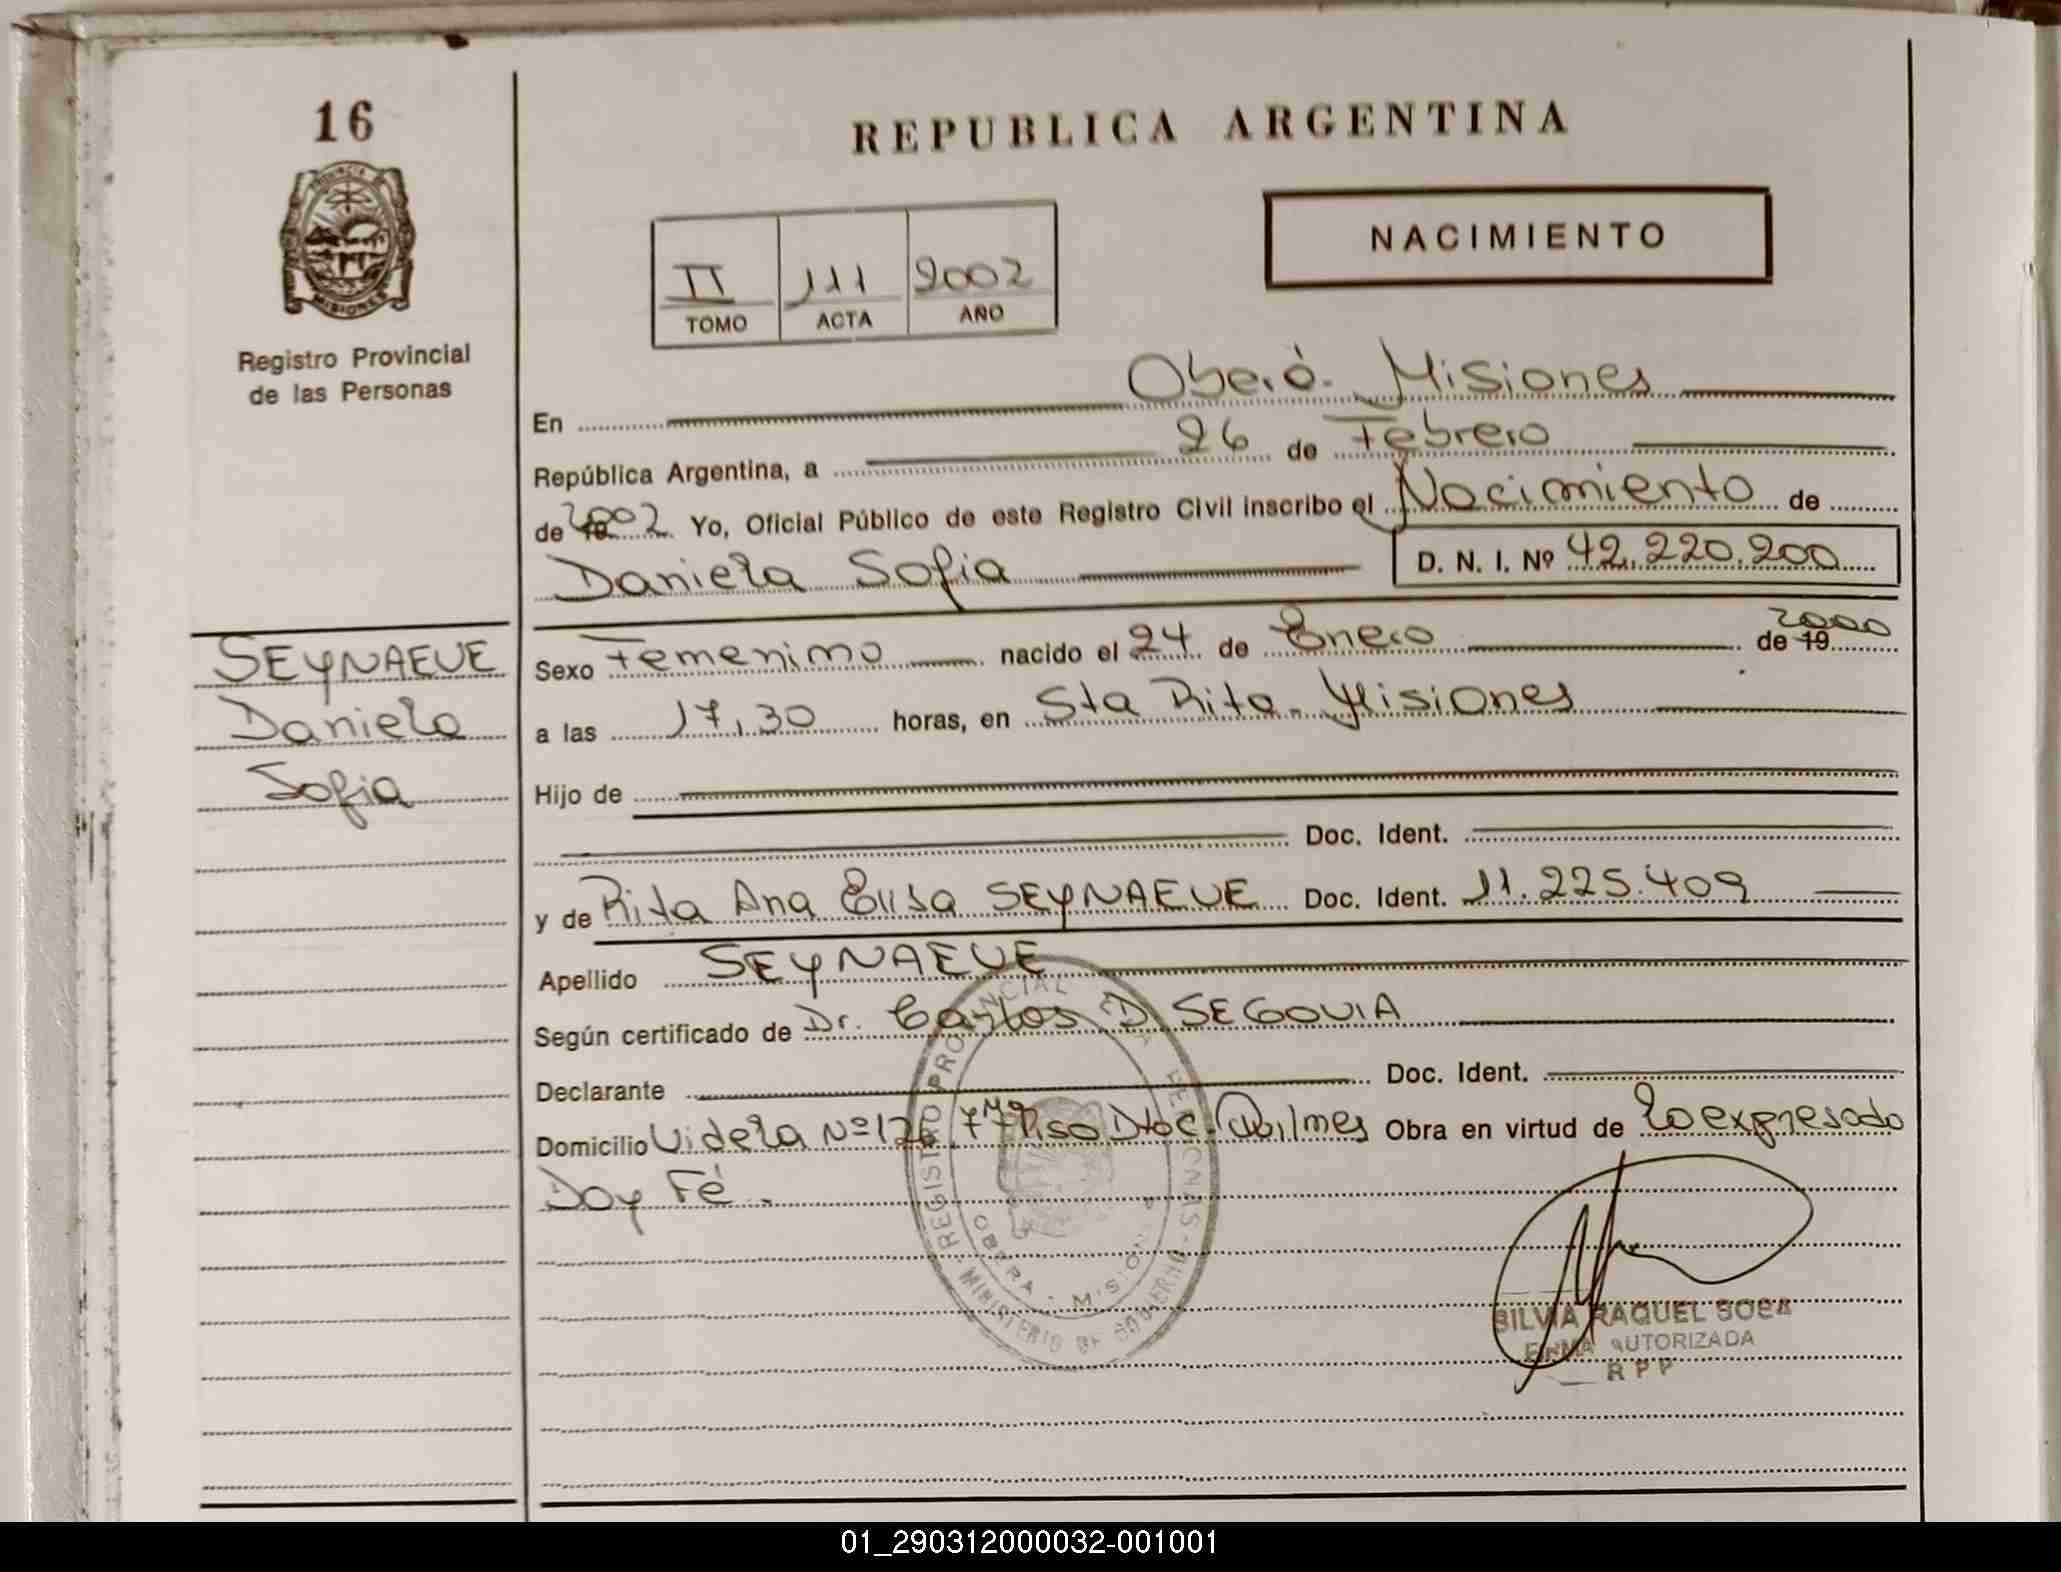 16
PROVINCIA DE
MISIONES
Registro Provincial
de las Personas
REPUBLICA ARGENTINA
NACIMIENTO
II 111 2002
TOMO ACTA AÑO
En Oberá. Misiones
República Argentina, a 26 de Febrero
de 19 2002 Yo, Oficial Público de este Registro Civil inscribo el Nacimiento de
Daniela Sofia D. N. I. Nº 42.220.200
SEYNAEVE
Daniela
Sofia
Sexo Femenino nacido el 24 de Enero de 19 2000
a las 17,30 horas, en Sta Rita - Misiones
Hijo de
Doc. Ident.
y de Rita Ana Elisa SEYNAEVE Doc. Ident. 11.225.409
Apellido SEYNAEVE
Según certificado de Dr. Carlos D SEGOVIA
Declarante Doc. Ident.
Domicilio Videla Nº 126 7mo Piso Dto C. Quilmes Obra en virtud de lo expresado
Doy Fé.
REGISTRO PROVINCIAL DE LAS PERSONAS - MINISTERIO DE GOBIERNO
OBERA - MISIONES
SILVIA RAQUEL SOSA
FIRMA AUTORIZADA
R P P
01_290312000032-001001